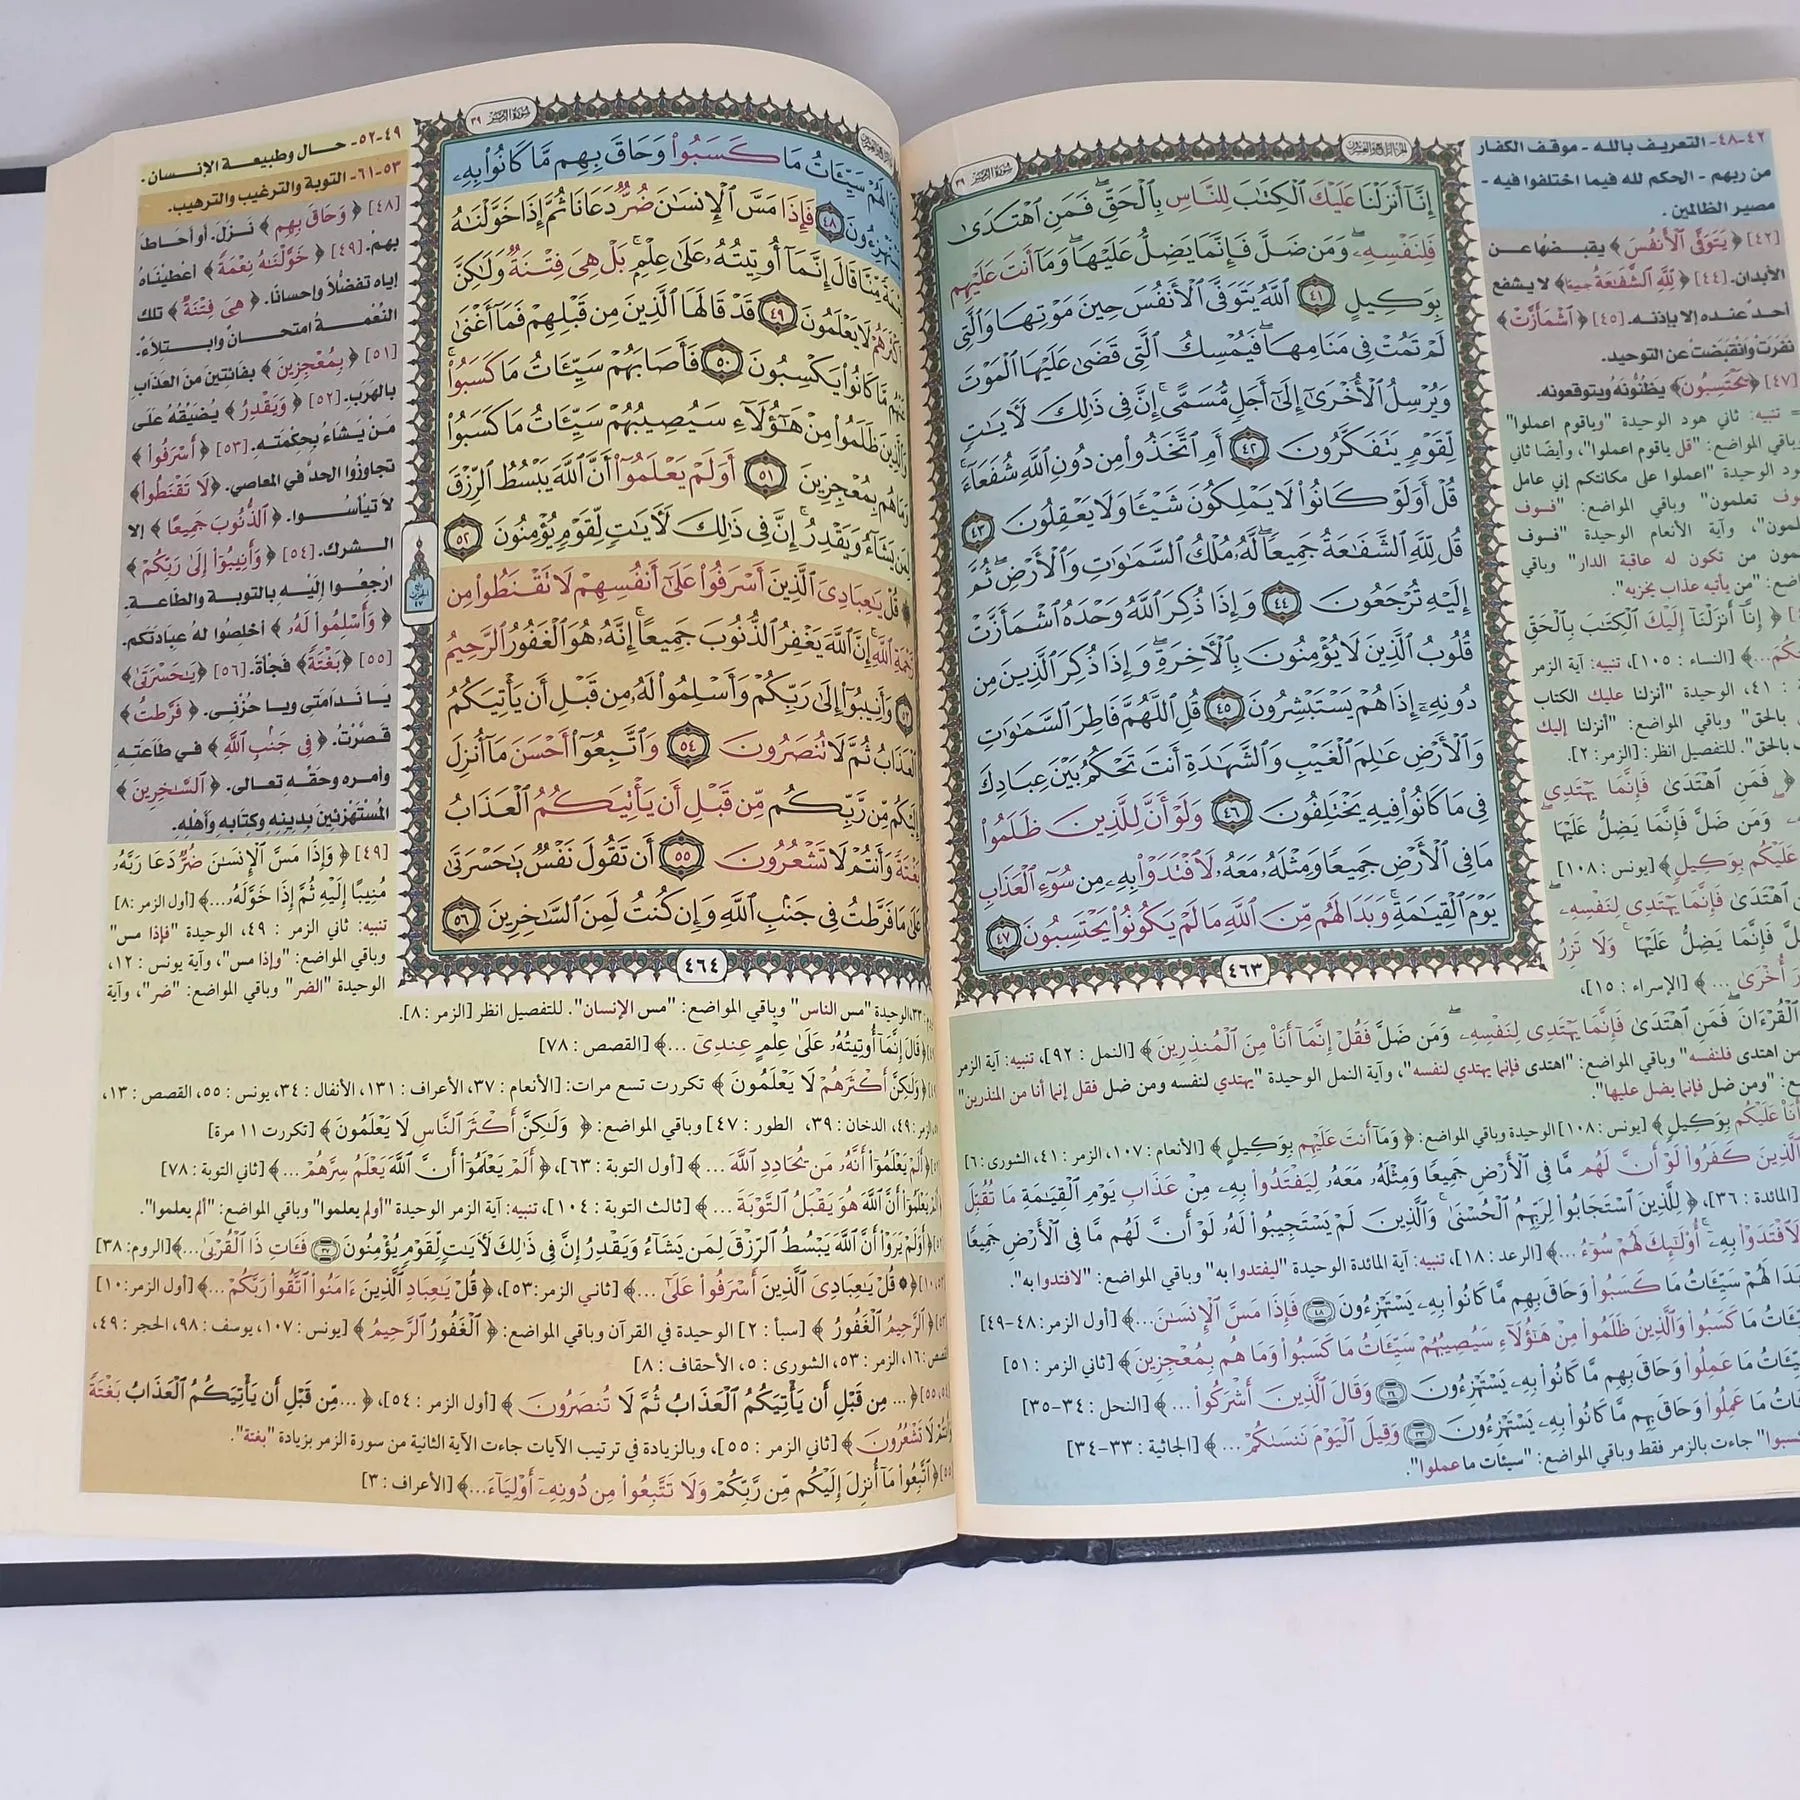 سورة الزمر ٣٩
٤٢-٤٨- التعريف بالله - موقف الكفار
من ربهم - الحكم لله فيما اختلفوا فيه -
مصير الظالمين.
[٤٢] ﴿يَتَوَفَّى الْأَنفُسَ﴾ يقبضها عن
الأبدان. [٤٤] ﴿لِّلَّهِ الشَّفَاعَةُ جَمِيعًا﴾ لا يشفع
أحد عنده إلا بإذنه. [٤٥] ﴿اشْمَأَزَّتْ﴾
نفرت وانقبضت عن التوحيد.
[٤٧] ﴿يَحْتَسِبُونَ﴾ يظنونه ويتوقعونه.
إِنَّآ أَنزَلْنَا عَلَيْكَ ٱلْكِتَٰبَ لِلنَّاسِ بِٱلْحَقِّ ۖ فَمَنِ ٱهْتَدَىٰ
فَلِنَفْسِهِۦ ۖ وَمَن ضَلَّ فَإِنَّمَا يَضِلُّ عَلَيْهَا ۖ وَمَآ أَنتَ عَلَيْهِم
بِوَكِيلٍ ٤١ ٱللَّهُ يَتَوَفَّى ٱلْأَنفُسَ حِينَ مَوْتِهَا وَٱلَّتِى
لَمْ تَمُتْ فِى مَنَامِهَا ۖ فَيُمْسِكُ ٱلَّتِى قَضَىٰ عَلَيْهَا ٱلْمَوْتَ
وَيُرْسِلُ ٱلْأُخْرَىٰٓ إِلَىٰٓ أَجَلٍ مُّسَمًّى ۚ إِنَّ فِى ذَٰلِكَ لَءَايَٰتٍ
لِّقَوْمٍ يَتَفَكَّرُونَ ٤٢ أَمِ ٱتَّخَذُوا۟ مِن دُونِ ٱللَّهِ شُفَعَآءَ ۚ
قُلْ أَوَلَوْ كَانُوا۟ لَا يَمْلِكُونَ شَيْـًٔا وَلَا يَعْقِلُونَ ٤٣
قُل لِّلَّهِ ٱلشَّفَٰعَةُ جَمِيعًا ۖ لَّهُۥ مُلْكُ ٱلسَّمَٰوَٰتِ وَٱلْأَرْضِ ۖ ثُمَّ
إِلَيْهِ تُرْجَعُونَ ٤٤ وَإِذَا ذُكِرَ ٱللَّهُ وَحْدَهُ ٱشْمَأَزَّتْ
قُلُوبُ ٱلَّذِينَ لَا يُؤْمِنُونَ بِٱلْءَاخِرَةِ ۖ وَإِذَا ذُكِرَ ٱلَّذِينَ مِن
دُونِهِۦٓ إِذَا هُمْ يَسْتَبْشِرُونَ ٤٥ قُلِ ٱللَّهُمَّ فَاطِرَ ٱلسَّمَٰوَٰتِ
وَٱلْأَرْضِ عَٰلِمَ ٱلْغَيْبِ وَٱلشَّهَٰدَةِ أَنتَ تَحْكُمُ بَيْنَ عِبَادِكَ
فِى مَا كَانُوا۟ فِيهِ يَخْتَلِفُونَ ٤٦ وَلَوْ أَنَّ لِلَّذِينَ ظَلَمُوا۟
مَا فِى ٱلْأَرْضِ جَمِيعًا وَمِثْلَهُۥ مَعَهُۥ لَٱفْتَدَوْا۟ بِهِۦ مِن سُوٓءِ ٱلْعَذَابِ
يَوْمَ ٱلْقِيَٰمَةِ ۚ وَبَدَا لَهُم مِّنَ ٱللَّهِ مَا لَمْ يَكُونُوا۟ يَحْتَسِبُونَ ٤٧
٤٦٣
= تنبيه: ثاني هود الوحيدة "وياقوم اعملوا"
وباقي المواضع: "قل ياقوم اعملوا"، وأيضًا ثاني
هود الوحيدة "اعملوا على مكانتكم إني عامل
سوف تعلمون" وباقي المواضع: "فسوف
تعلمون"، وآية الأنعام الوحيدة "فسوف
تعلمون من تكون له عاقبة الدار" وباقي
المواضع: "من يأتيه عذاب يخزيه"
﴿إِنَّآ أَنزَلْنَآ إِلَيْكَ ٱلْكِتَٰبَ بِٱلْحَقِّ
...﴾ [النساء: ١٠٥]، تنبيه: آية الزمر
: ٤١، الوحيدة "أنزلنا عليك الكتاب
بالحق" وباقي المواضع: "أنزلنا إليك
بالحق". للتفصيل انظر: [الزمر: ٢].
﴿ فَمَنِ ٱهْتَدَىٰ فَإِنَّمَا يَهْتَدِى
وَمَن ضَلَّ فَإِنَّمَا يَضِلُّ عَلَيْهَا
عَلَيْكُم بِوَكِيلٍ﴾ [يونس: ١٠٨]
ٱهْتَدَىٰ فَإِنَّمَا يَهْتَدِى لِنَفْسِهِۦ
فَإِنَّمَا يَضِلُّ عَلَيْهَا وَلَا تَزِرُ
أُخْرَىٰ ...﴾ [الإسراء: ١٥]،
ٱلْقُرْءَانَ ۖ فَمَنِ ٱهْتَدَىٰ فَإِنَّمَا يَهْتَدِى لِنَفْسِهِۦ ۖ وَمَن ضَلَّ فَقُلْ إِنَّمَآ أَنَا۠ مِنَ ٱلْمُنذِرِينَ﴾ [النمل: ٩٢]، تنبيه: آية الزمر
من اهتدى فلنفسه" وباقي المواضع: "اهتدى فإنما يهتدي لنفسه"، وآية النمل الوحيدة "يهتدي لنفسه ومن ضل فقل إنما أنا من المنذرين"
: "ومن ضل فإنما يضل عليها".
أَنَا۠ عَلَيْكُم بِوَكِيلٍ﴾ [يونس: ١٠٨] الوحيدة وباقي المواضع: ﴿وَمَآ أَنتَ عَلَيْهِم بِوَكِيلٍ﴾ [الأنعام: ١٠٧، الزمر: ٤١، الشورى: ٦]
ٱلَّذِينَ كَفَرُوا۟ لَوْ أَنَّ لَهُم مَّا فِى ٱلْأَرْضِ جَمِيعًا وَمِثْلَهُۥ مَعَهُۥ لِيَفْتَدُوا۟ بِهِۦ مِنْ عَذَابِ يَوْمِ ٱلْقِيَٰمَةِ مَا تُقُبِّلَ
[المائدة: ٣٦]، ﴿لِلَّذِينَ ٱسْتَجَابُوا۟ لِرَبِّهِمُ ٱلْحُسْنَىٰ ۚ وَٱلَّذِينَ لَمْ يَسْتَجِيبُوا۟ لَهُۥ لَوْ أَنَّ لَهُم مَّا فِى ٱلْأَرْضِ جَمِيعًا
لَٱفْتَدَوْا۟ بِهِۦٓ ۚ أُو۟لَٰٓئِكَ لَهُمْ سُوٓءُ ...﴾ [الرعد: ١٨]، تنبيه: آية المائدة الوحيدة "ليفتدوا به" وباقي المواضع: "لافتدوا به".
بَدَا لَهُمْ سَيِّـَٔاتُ مَا كَسَبُوا۟ وَحَاقَ بِهِم مَّا كَانُوا۟ بِهِۦ يَسْتَهْزِءُونَ ٤٨ فَإِذَا مَسَّ ٱلْإِنسَٰنَ...﴾ [أول الزمر: ٤٨-٤٩]
سَيِّـَٔاتُ مَا كَسَبُوا۟ وَٱلَّذِينَ ظَلَمُوا۟ مِنْ هَٰٓؤُلَآءِ سَيُصِيبُهُمْ سَيِّـَٔاتُ مَا كَسَبُوا۟ وَمَا هُم بِمُعْجِزِينَ﴾ [ثاني الزمر: ٥١]
سَيِّـَٔاتُ مَا عَمِلُوا۟ وَحَاقَ بِهِم مَّا كَانُوا۟ بِهِۦ يَسْتَهْزِءُونَ ٣٤ وَقَالَ ٱلَّذِينَ أَشْرَكُوا۟ ...﴾ [النحل: ٣٤-٣٥]
سَيِّـَٔاتُ مَا عَمِلُوا۟ وَحَاقَ بِهِم مَّا كَانُوا۟ بِهِۦ يَسْتَهْزِءُونَ ٣٣ وَقِيلَ ٱلْيَوْمَ نَنسَىٰكُمْ...﴾ [الجاثية: ٣٣-٣٤]
كسبوا" جاءت بالزمر فقط وباقي المواضع: "سيئات ما عملوا".
سورة الزمر ٣٩
لَهُمْ سَيِّـَٔاتُ مَا كَسَبُوا۟ وَحَاقَ بِهِم مَّا كَانُوا۟ بِهِۦ
يَسْتَهْزِءُونَ ٤٨ فَإِذَا مَسَّ ٱلْإِنسَٰنَ ضُرٌّ دَعَانَا ثُمَّ إِذَا خَوَّلْنَٰهُ
نِعْمَةً مِّنَّا قَالَ إِنَّمَآ أُوتِيتُهُۥ عَلَىٰ عِلْمٍۭ ۚ بَلْ هِىَ فِتْنَةٌ وَلَٰكِنَّ
أَكْثَرَهُمْ لَا يَعْلَمُونَ ٤٩ قَدْ قَالَهَا ٱلَّذِينَ مِن قَبْلِهِمْ فَمَآ أَغْنَىٰ
عَنْهُم مَّا كَانُوا۟ يَكْسِبُونَ ٥٠ فَأَصَابَهُمْ سَيِّـَٔاتُ مَا كَسَبُوا۟ ۚ
وَٱلَّذِينَ ظَلَمُوا۟ مِنْ هَٰٓؤُلَآءِ سَيُصِيبُهُمْ سَيِّـَٔاتُ مَا كَسَبُوا۟
وَمَا هُم بِمُعْجِزِينَ ٥١ أَوَلَمْ يَعْلَمُوٓا۟ أَنَّ ٱللَّهَ يَبْسُطُ ٱلرِّزْقَ
لِمَن يَشَآءُ وَيَقْدِرُ ۚ إِنَّ فِى ذَٰلِكَ لَءَايَٰتٍ لِّقَوْمٍ يُؤْمِنُونَ ٥٢
۞ قُلْ يَٰعِبَادِىَ ٱلَّذِينَ أَسْرَفُوا۟ عَلَىٰٓ أَنفُسِهِمْ لَا تَقْنَطُوا۟ مِن
رَّحْمَةِ ٱللَّهِ ۚ إِنَّ ٱللَّهَ يَغْفِرُ ٱلذُّنُوبَ جَمِيعًا ۚ إِنَّهُۥ هُوَ ٱلْغَفُورُ ٱلرَّحِيمُ
٥٣ وَأَنِيبُوٓا۟ إِلَىٰ رَبِّكُمْ وَأَسْلِمُوا۟ لَهُۥ مِن قَبْلِ أَن يَأْتِيَكُمُ
ٱلْعَذَابُ ثُمَّ لَا تُنصَرُونَ ٥٤ وَٱتَّبِعُوٓا۟ أَحْسَنَ مَآ أُنزِلَ
إِلَيْكُم مِّن رَّبِّكُم مِّن قَبْلِ أَن يَأْتِيَكُمُ ٱلْعَذَابُ
بَغْتَةً وَأَنتُمْ لَا تَشْعُرُونَ ٥٥ أَن تَقُولَ نَفْسٌ يَٰحَسْرَتَىٰ
عَلَىٰ مَا فَرَّطتُ فِى جَنۢبِ ٱللَّهِ وَإِن كُنتُ لَمِنَ ٱلسَّٰخِرِينَ ٥٦
٤٦٤
٤٩-٥٢- حال وطبيعة الإنسان.
٥٣-٦١- التوبة والترغيب والترهيب.
[٤٨] ﴿وَحَاقَ بِهِم﴾ نزل، أو أحاط
بهم. [٤٩] ﴿خَوَّلْنَٰهُ نِعْمَةً﴾ أعطيناه
إياه تفضلًا وإحسانًا. ﴿هِىَ فِتْنَةٌ﴾ تلك
النعمة امتحان وابتلاء.
[٥١] ﴿بِمُعْجِزِينَ﴾ بفائتين من العذاب
بالهرب. [٥٢] ﴿وَيَقْدِرُ﴾ يضيقه على
من يشاء بحكمته. [٥٣] ﴿أَسْرَفُوا۟﴾
تجاوزوا الحد في المعاصي. ﴿لَا تَقْنَطُوا۟﴾
لا تيأسوا. ﴿ٱلذُّنُوبَ جَمِيعًا﴾ إلا
الشرك. [٥٤] ﴿وَأَنِيبُوٓا۟ إِلَىٰ رَبِّكُمْ﴾
ارجعوا إليه بالتوبة والطاعة.
﴿وَأَسْلِمُوا۟ لَهُۥ﴾ أخلصوا له عبادتكم.
[٥٥] ﴿بَغْتَةً﴾ فجأة. [٥٦] ﴿يَٰحَسْرَتَىٰ﴾
يا ندامتى ويا حزنى. ﴿فَرَّطتُ﴾
قصرت. ﴿فِى جَنۢبِ ٱللَّهِ﴾ في طاعته
وأمره وحقه تعالى. ﴿ٱلسَّٰخِرِينَ﴾
المستهزئين بدينه وكتابه وأهله.
[٤٩] ﴿وَإِذَا مَسَّ ٱلْإِنسَٰنَ ضُرٌّ دَعَا رَبَّهُۥ
مُنِيبًا إِلَيْهِ ثُمَّ إِذَا خَوَّلَهُۥ...﴾ [أول الزمر: ٨]
تنبيه: ثاني الزمر: ٤٩، الوحيدة "فإذا مس"
وباقي المواضع: "وإذا مس"، وآية يونس: ١٢،
الوحيدة "الضر" وباقي المواضع: "ضر"، وآية
٣٣، الوحيدة "مس الناس" وباقي المواضع: "مس الإنسان". للتفصيل انظر [الزمر: ٨].
﴿قَالَ إِنَّمَآ أُوتِيتُهُۥ عَلَىٰ عِلْمٍ عِندِىٓ ...﴾ [القصص: ٧٨]
﴿وَلَٰكِنَّ أَكْثَرَهُمْ لَا يَعْلَمُونَ﴾ تكررت تسع مرات: [الأنعام: ٣٧، الأعراف: ١٣١، الأنفال: ٣٤، يونس: ٥٥، القصص: ١٣،
الزمر: ٤٩، الدخان: ٣٩، الطور: ٤٧] وباقي المواضع: ﴿وَلَٰكِنَّ أَكْثَرَ ٱلنَّاسِ لَا يَعْلَمُونَ﴾ [تكررت ١١ مرة]
﴿أَلَمْ يَعْلَمُوٓا۟ أَنَّهُۥ مَن يُحَادِدِ ٱللَّهَ ...﴾ [أول التوبة: ٦٣]، ﴿أَلَمْ يَعْلَمُوٓا۟ أَنَّ ٱللَّهَ يَعْلَمُ سِرَّهُمْ ...﴾ [ثاني التوبة: ٧٨]
أَلَمْ يَعْلَمُوٓا۟ أَنَّ ٱللَّهَ هُوَ يَقْبَلُ ٱلتَّوْبَةَ ...﴾ [ثالث التوبة: ١٠٤]، تنبيه: آية الزمر الوحيدة "أولم يعلموا" وباقي المواضع: "ألم يعلموا".
﴿أَوَلَمْ يَرَوْا۟ أَنَّ ٱللَّهَ يَبْسُطُ ٱلرِّزْقَ لِمَن يَشَآءُ وَيَقْدِرُ إِنَّ فِى ذَٰلِكَ لَءَايَٰتٍ لِّقَوْمٍ يُؤْمِنُونَ ٣٧ فَـَٔاتِ ذَا ٱلْقُرْبَىٰ...﴾ [الروم: ٣٨]
[٥٣، ١٠] ﴿۞ قُلْ يَٰعِبَادِىَ ٱلَّذِينَ أَسْرَفُوا۟ عَلَىٰٓ ...﴾ [ثاني الزمر: ٥٣]، ﴿قُلْ يَٰعِبَادِ ٱلَّذِينَ ءَامَنُوا۟ ٱتَّقُوا۟ رَبَّكُمْ...﴾ [أول الزمر: ١٠]
﴿ٱلرَّحِيمُ ٱلْغَفُورُ﴾ [سبأ: ٢] الوحيدة في القرآن وباقي المواضع: ﴿ٱلْغَفُورُ ٱلرَّحِيمُ﴾ [يونس: ١٠٧، يوسف: ٩٨، الحجر: ٤٩،
القصص: ١٦، الزمر: ٥٣، الشورى: ٥، الأحقاف: ٨]
[٥٤، ٥٥] ﴿... مِن قَبْلِ أَن يَأْتِيَكُمُ ٱلْعَذَابُ ثُمَّ لَا تُنصَرُونَ﴾ [أول الزمر: ٥٤]، ﴿...مِّن قَبْلِ أَن يَأْتِيَكُمُ ٱلْعَذَابُ بَغْتَةً
وَأَنتُمْ لَا تَشْعُرُونَ﴾ [ثاني الزمر: ٥٥]، وبالزيادة في ترتيب الآيات جاءت الآية الثانية من سورة الزمر بزيادة "بغتة".
[٥٥] ﴿ٱتَّبِعُوا۟ مَآ أُنزِلَ إِلَيْكُم مِّن رَّبِّكُمْ وَلَا تَتَّبِعُوا۟ مِن دُونِهِۦٓ أَوْلِيَآءَ...﴾ [الأعراف: ٣]